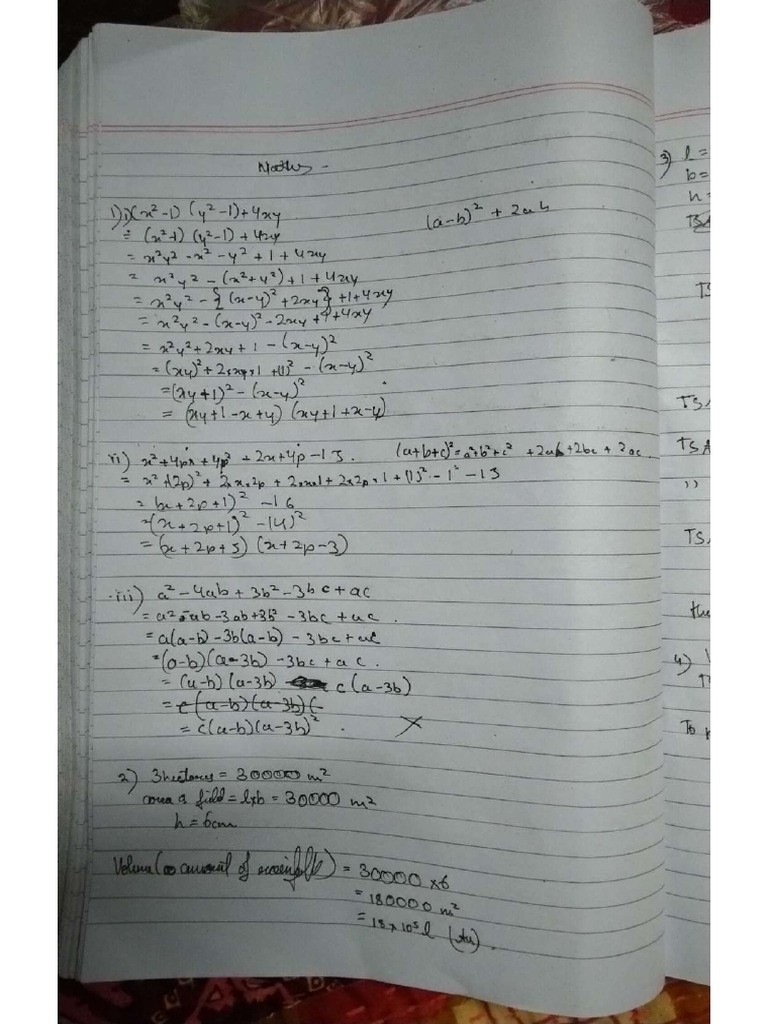 Maths -
1) i) (x²-1) (y²-1) + 4xy
= (x²-1) (y²-1) + 4xy
(a-b)² + 2ab
= x²y² - x² - y² + 1 + 4xy
= x²y² - (x²+y²) + 1 + 4xy
= x²y² - {(x-y)² + 2xy} + 1 + 4xy
= x²y² - (x-y)² - 2xy + 1 + 4xy
= x²y² + 2xy + 1 - (x-y)²
= (xy)² + 2×xy×1 + (1)² - (x-y)²
= (xy+1)² - (x-y)²
= (xy+1-x+y) (xy+1+x-y)
ii) x² + 4px + 4p² + 2x + 4p - 15.
(a+b+c)² = a²+b²+c² + 2ab + 2bc + 2ac
= x² + (2p)² + 2×x×2p + 2×x×1 + 2×2p×1 + (1)² - 1² - 15
= (x+2p+1)² - 16
= (x+2p+1)² - (4)²
= (x+2p+5) (x+2p-3)
iii) a² - 4ab + 3b² - 3bc + ac
= a² - ab - 3ab + 3b² - 3bc + ac.
= a(a-b) - 3b(a-b) - 3bc + ac
= (a-b)(a-3b) - 3bc + ac.
= (a-b) (a-3b) c(a-3b)
= c(a-b)(a-3b)(
= c(a-b)(a-3b)². ×
2) 3 hectares = 30000 m²
area of field = l×b = 30000 m²
h = 6cm
Volume (or amount of rainfall) = 30000 ×6
= 180000 m²
= 18×10⁵ l (Au).
3) l =
b =
h =
TSA
TS
TSA
TSA
"
TSA
the
4)
To